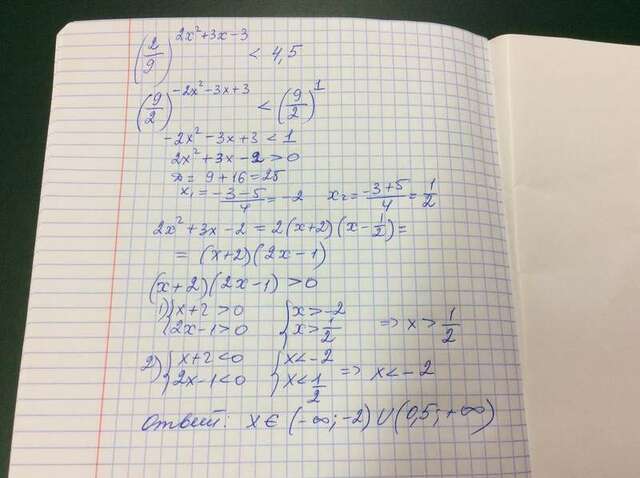 (2/9)^(2x²+3x-3) < 4,5
(9/2)^(-2x²-3x+3) < (9/2)^1
-2x²-3x+3 < 1
2x²+3x-2 > 0
D = 9+16 = 25
x₁ = (-3-5)/4 = -2 x₂ = (-3+5)/4 = 1/2
2x²+3x-2 = 2(x+2)(x-1/2) =
= (x+2)(2x-1)
(x+2)(2x-1) > 0
1) { x+2 > 0 { x > -2
2x-1 > 0 x > 1/2 => x > 1/2
2) { x+2 < 0 { x < -2
2x-1 < 0 x < 1/2 => x < -2
Ответ: x ∈ (-∞; -2) ∪ (0,5; +∞)